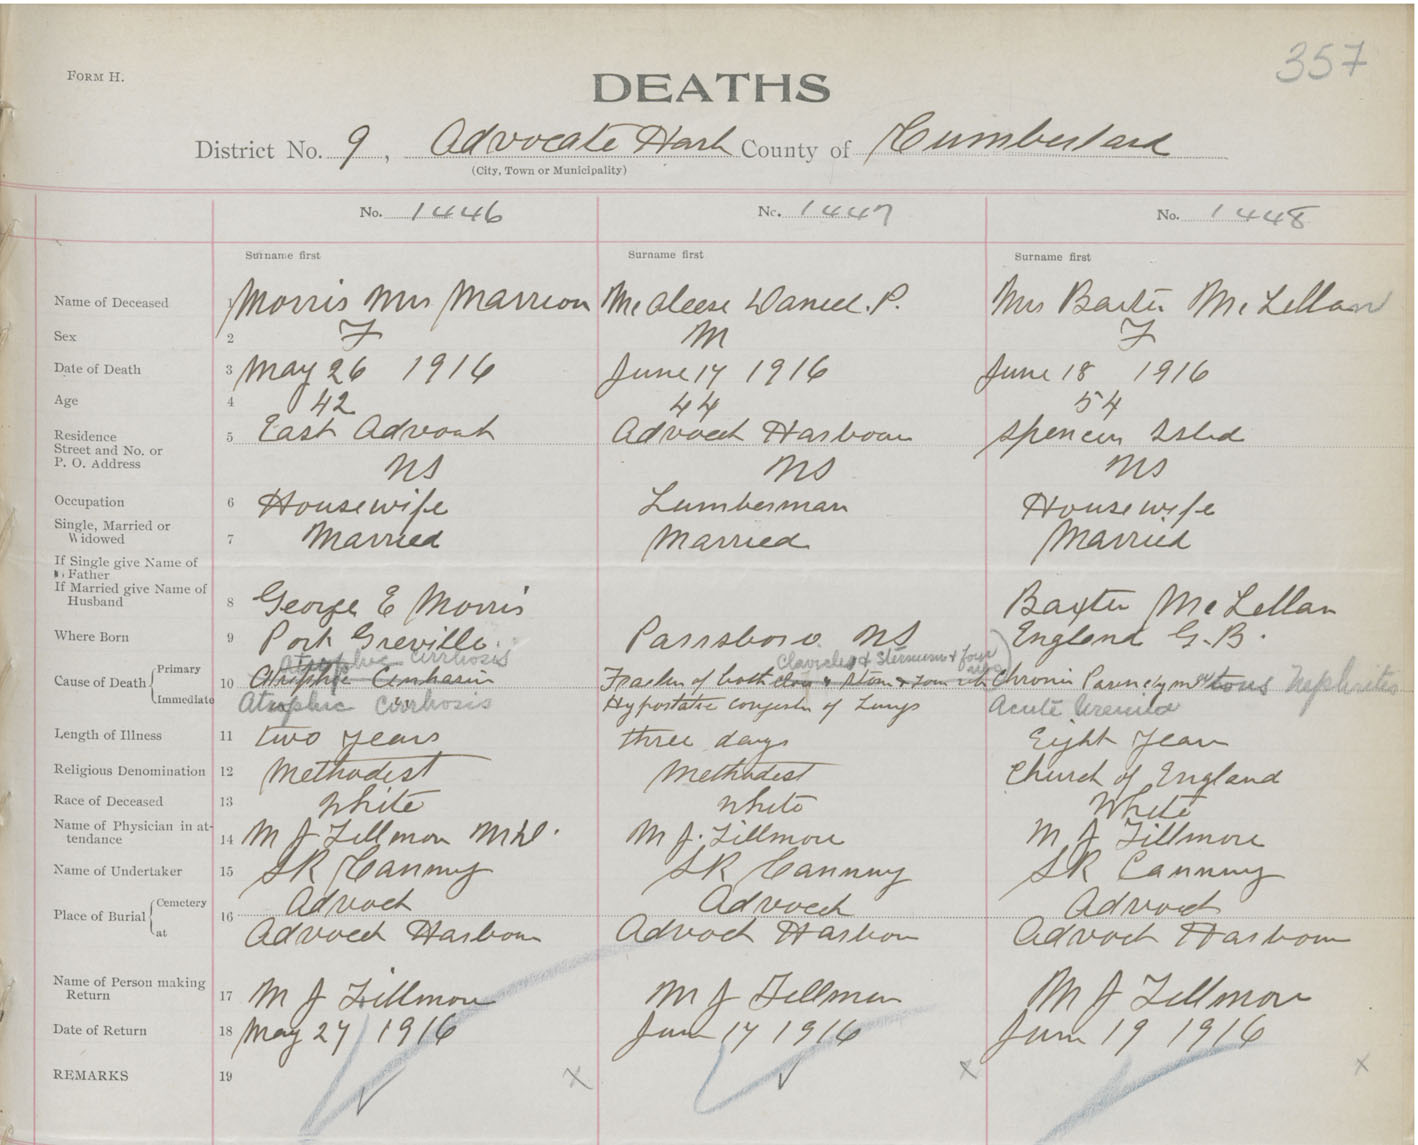 357
FORM H.
DEATHS
District No. 9, Advocate Harb County of Cumberland
(City, Town or Municipality)
No. 1446 No. 1447 No. 1448
Surname first Surname first Surname first
Name of Deceased 1 Morris Mrs Marrion McAleese Daniel. P. Mrs Baxter McLellan
Sex 2 F M F
Date of Death 3 May 26 1916 June 17 1916 June 18 1916
Age 4 42 44 54
Residence Street and No. or P. O. Address 5 East Advocat Advocat Harbour Spencers Island
NS NS NS
Occupation 6 Housewife Lumberman Housewife
Single, Married or Widowed 7 Married Married Married
If Single give Name of Father
If Married give Name of Husband 8 George E Morris Baxter McLellan
Where Born 9 Port Greville. Parrsboro NS England G.B.
Atrophic Cirrhosis Clavicles & Sternum & four ribs
Cause of Death Primary 10 Atrophic Fractur of both & four rib Chronic Parenchymatous Nephrites
Immediate Atrophic Cirrhosis Hypostatic congestn of Lungs Acute Uremia
Length of Illness 11 two years three days Eight Years
Religious Denomination 12 Methodist Methodist Church of England
Race of Deceased 13 White White White
Name of Physician in attendance 14 M J Fillmore MD. M J. Fillmore M J Fillmore
Name of Undertaker 15 SR Canning SR Canning SR Canning
Place of Burial Cemetery 16 Advocat Advocat Advocat
at Advocat Harbour Advocat Harbour Advocat Harbour
Name of Person making Return 17 M J Fillmore M J Fillmore M J Fillmore
Date of Return 18 May 27 1916 June 17 1916 June 19 1916
REMARKS 19 x x x